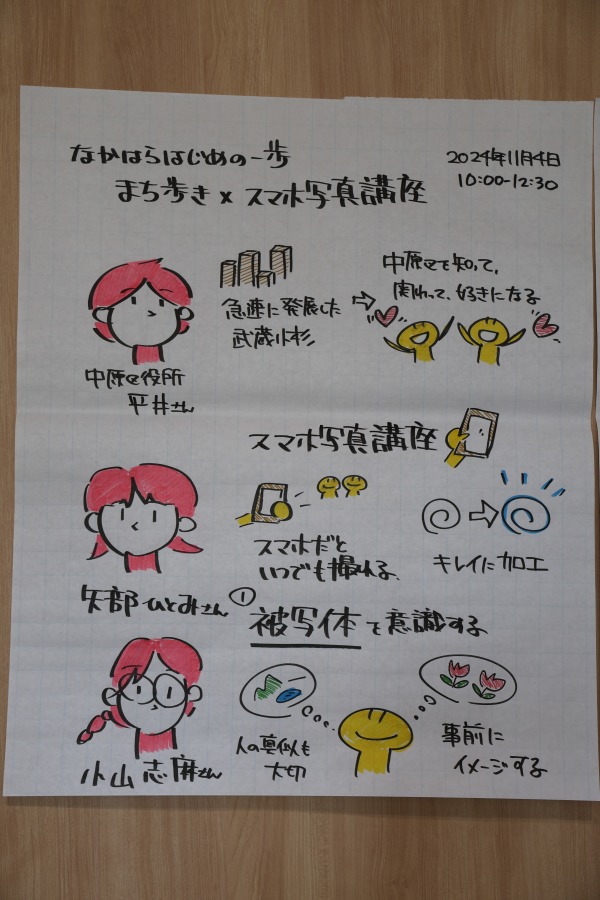 なかはらはじめの一歩
まち歩き×スマホ写真講座
2024年11月4日
10:00-12:30
急速に発展した
武蔵小杉
中原区を知って、
関わって、好きになる
中原区役所
平井さん
スマホ写真講座
スマホだと
いつでも撮れる。
キレイに加工
矢部ひとみさん
① 被写体を意識する
人の真似も
大切
事前に
イメージする
小山志麻さん